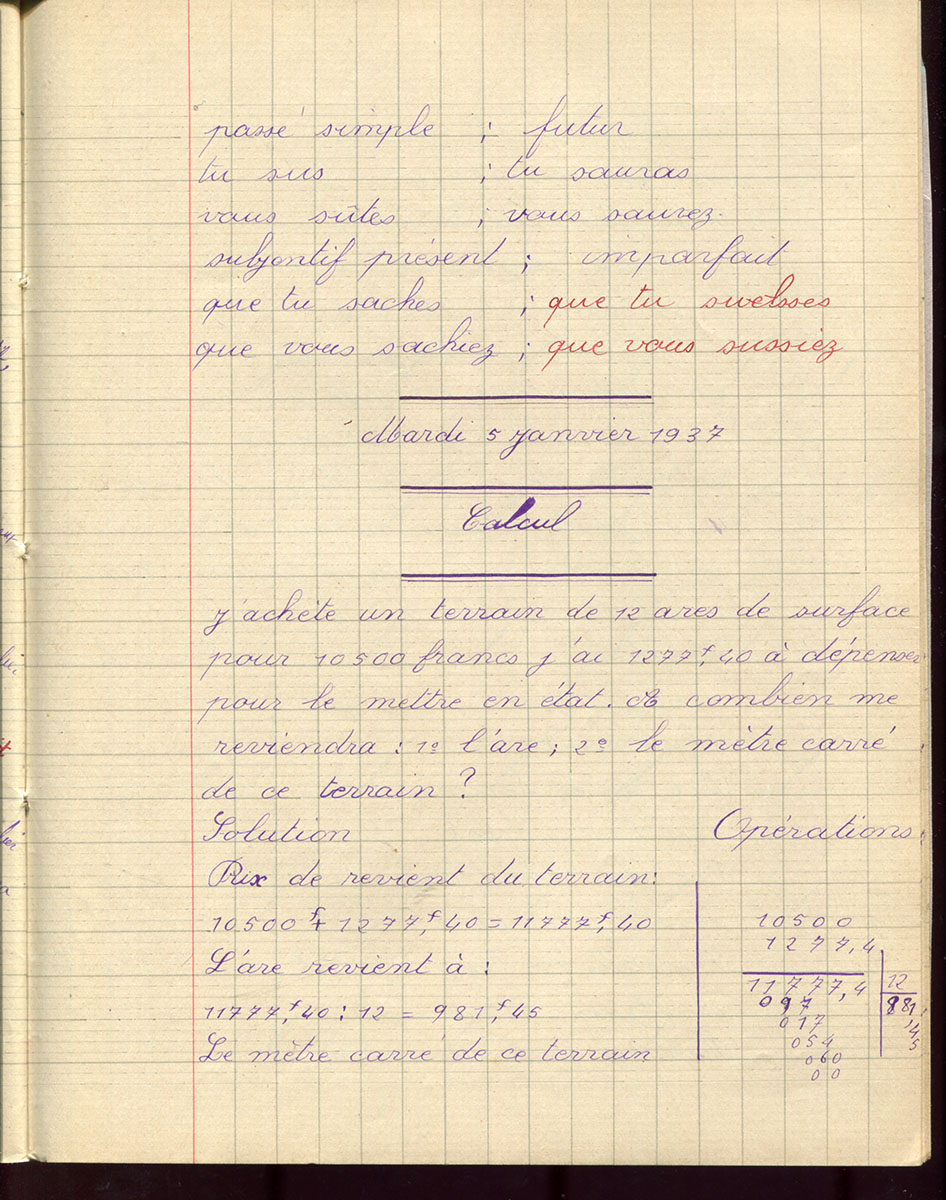 passé simple ; futur
tu sus ; tu sauras
vous sûtes ; vous saurez.
subjontif présent ; imparfait
que tu saches ; que tu
que vous sachiez ; que vous sussiez
Mardi 5 Janvier 1937
Calcul
J'achète un terrain de 12 ares de surface
pour 10500 francs j'ai 1277f,40 à dépenser
pour le mettre en état. A combien me
reviendra : 1º l'are ; 2º le mètre carré
de ce terrain ?
Solution Opérations
Prix de revient du terrain :
10500f + 1277f,40 = 11777f,40
L'are revient à :
11777f,40 : 12 = 981f,45
Le mètre carré de ce terrain
10500
1277,4
11777,4 12
097 981
017 ,45
054
060
00